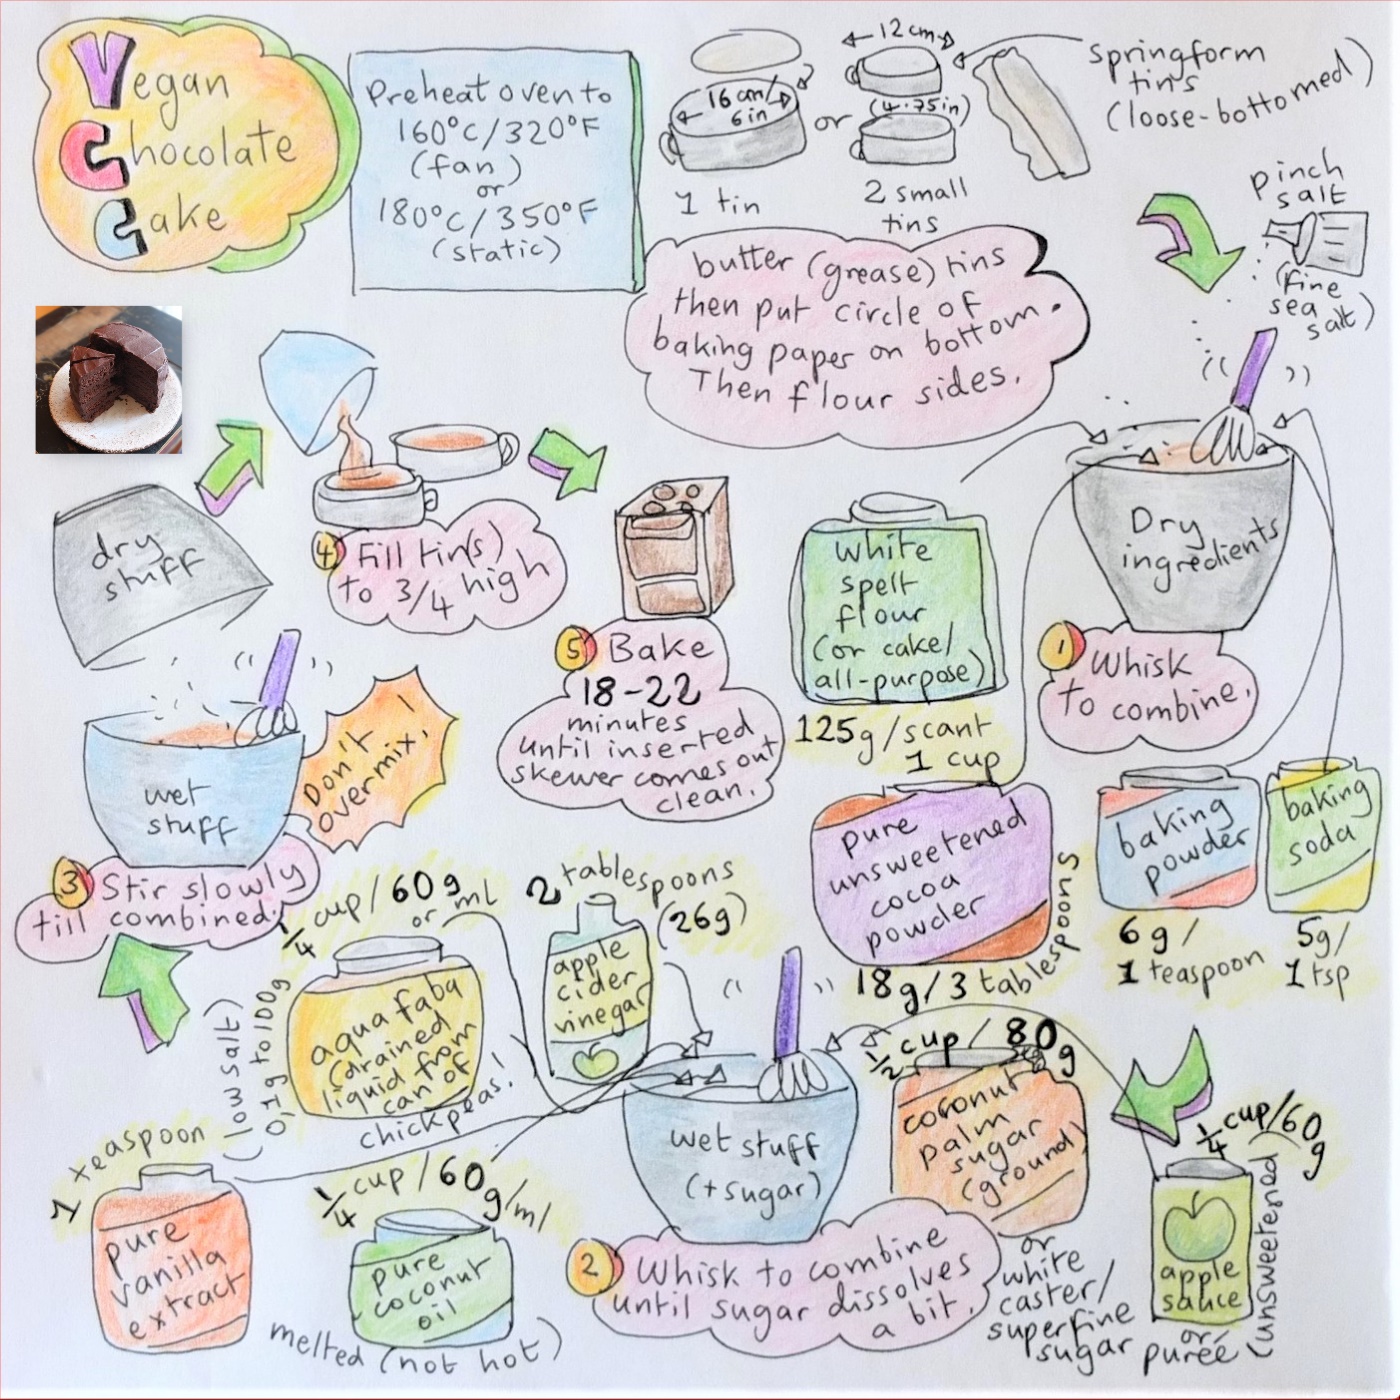 Vegan
Chocolate
Cake
Preheat oven to
160°C/320°F
(fan)
or
180°C/350°F
(static)
16 cm/
6 in
1 tin
or
12 cm
(4.75in)
2 small
tins
springform
tins
(loose-bottomed)
butter (grease) tins
then put circle of
baking paper on bottom.
Then flour sides.
pinch
salt
(fine
sea
salt)
Dry
ingredients
1 Whisk
to combine.
white
spelt
flour
(or cake/
all-purpose)
125g/scant
1 cup
pure
unsweetened
cocoa
powder
18g/3 tablespoons
baking
powder
6g/
1 teaspoon
baking
soda
5g/
1 tsp
wet stuff
(+sugar)
2 Whisk to combine
until sugar dissolves
a bit.
1/2 cup/80g
coconut
palm
sugar
(ground)
or
white
caster/
superfine
sugar
1/4 cup/60
g
apple
sauce
(unsweetened)
or
purée
2 tablespoons
(26g)
apple
cider
vinegar
1/4 cup/60g
or ml
aquafaba
(drained
liquid from
can of
chickpeas!
(low salt)
0,1g to 100g
1 teaspoon
pure
vanilla
extract
1/4 cup/60g/ml
pure
coconut
oil
melted (not hot)
dry
stuff
wet
stuff
Don't
overmix!
3 Stir slowly
till combined.
4 Fill tin(s)
to 3/4 high
5 Bake
18-22
minutes
until inserted
skewer comes out
clean.